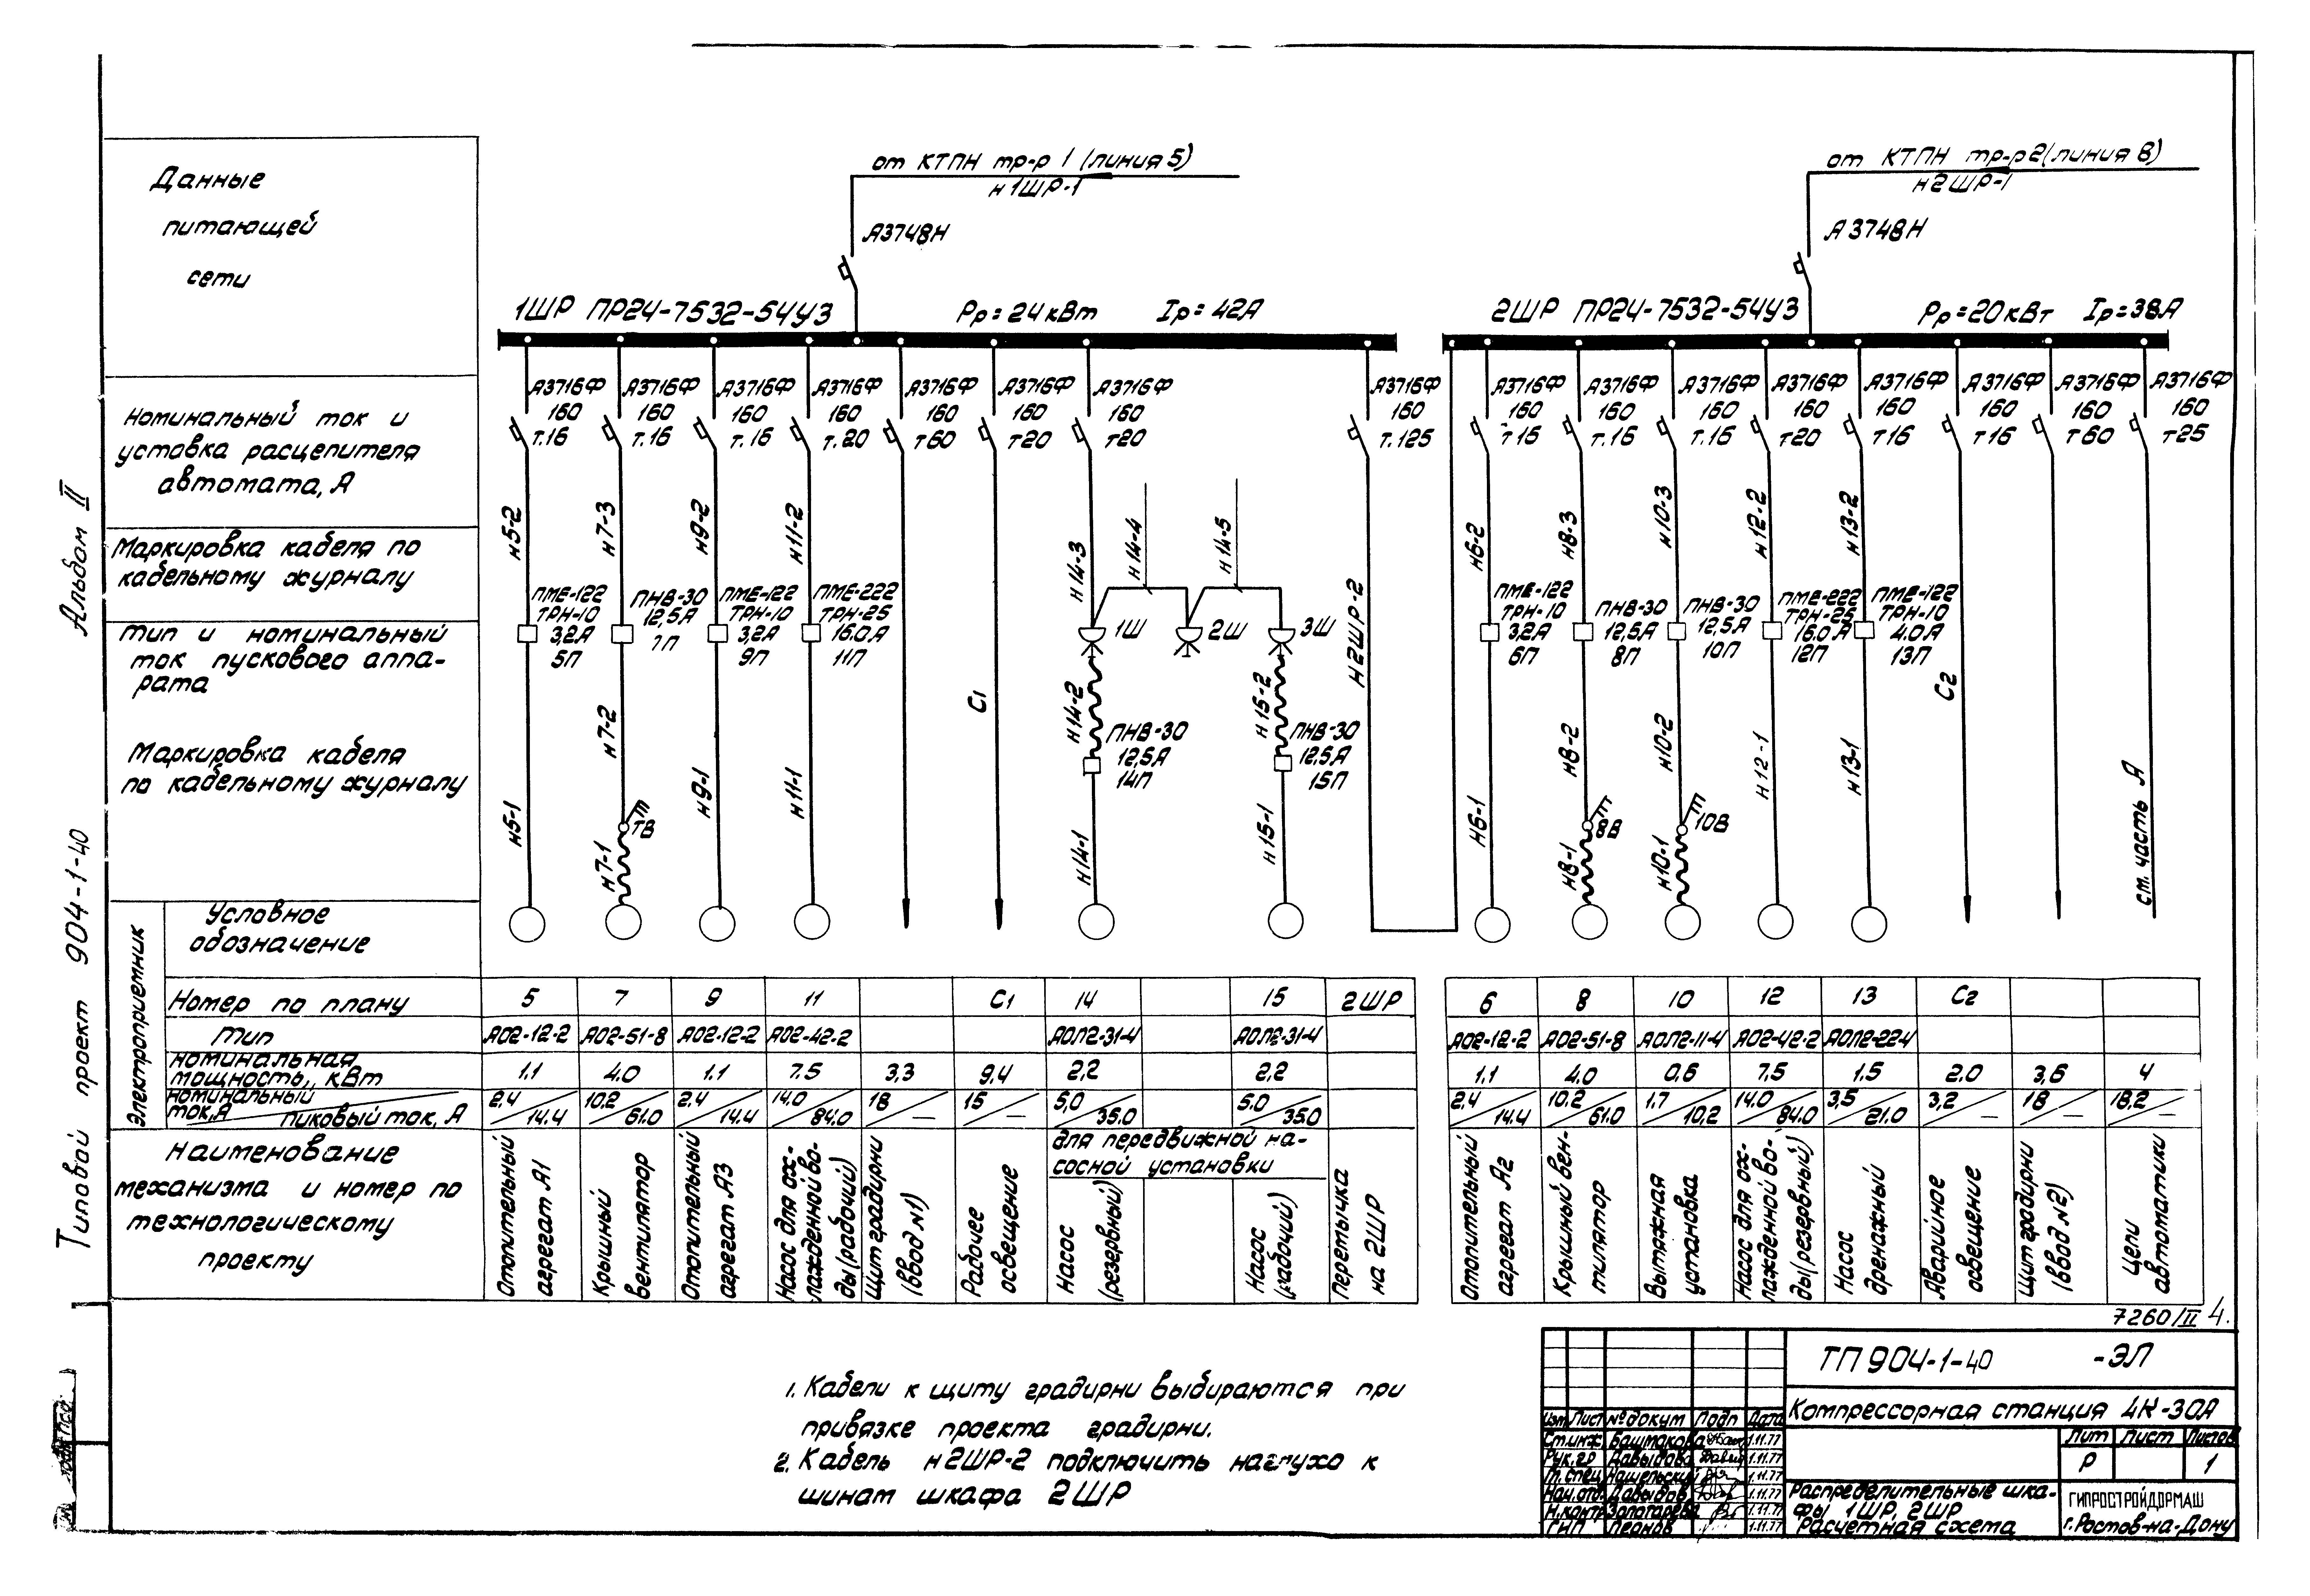 Альбом II
Типовой проект 904-1-40
Данные
питающей
сети
Номинальный ток и
уставка расцепителя
автомата, А
Маркировка кабеля по
кабельному журналу
Тип и номинальный
ток пускового аппа-
рата
Маркировка кабеля
по кабельному журналу
Электроприемник
Условное
обозначение
Номер по плану
Тип
Номинальная
мощность, кВт
Номинальный
ток, А
пиковый ток, А
Наименование
механизма и номер по
технологическому
проекту
от КТПН тр-р 1 (линия 5)
н1ШР-1
А3748Н
1ШР ПР24-7532-54У3 Рр=24кВт Iр=42А
А3716Ф А3716Ф А3716Ф А3716Ф А3716Ф А3716Ф А3716Ф А3716Ф
160 160 160 160 160 160 160 160
т.16 т.16 т.16 т.20 т60 т20 т20 т.125
н5-2 н7-3 н9-2 н11-2 н14-3 н14-4 н14-5 н2ШР-2
ПМЕ-122 ПНВ-30 ПМЕ-122 ПМЕ-222
ТРН-10 12,5А ТРН-10 ТРН-25
3,2А 7П 3,2А 16.0А 1Ш 2Ш 3Ш
5П 9П 11П
н7-2 С1 н14-2 н15-2
ПНВ-30 ПНВ-30
12,5А 12,5А
14П 15П
н5-1 7В н9-1 н11-1
н7-1 н14-1 н15-1
5 7 9 11 С1 14 15 2ШР
АО2-12-2 АО2-51-8 АО2-12-2 АО2-42-2 АОЛ2-31-4 АОЛ2-31-4
1.1 4.0 1.1 7.5 3,3 9,4 2,2 2,2
2,4 10,2 2,4 14,0 18 15 5,0 5.0
14.4 61.0 14.4 84.0 — — 35.0 35.0
Отопительный
агрегат А1
Крышный
вентилятор
Отопительный
агрегат А3
Насос для ох-
лажденной во-
ды (рабочий)
Щит градирни
(ввод №1)
Рабочее
освещение
для передвижной на-
сосной установки
Насос
(резервный)
Насос
(рабочий)
Перемычка
на 2ШР
от КТПН тр-р 2 (линия 8)
н2ШР-1
А3748Н
2ШР ПР24-7532-54У3 Рр=20кВт Iр=38А
А3716Ф А3716Ф А3716Ф А3716Ф А3716Ф А3716Ф А3716Ф А3716Ф
160 160 160 160 160 160 160 160
т16 т.16 т.16 т20 т16 т16 т60 т25
н6-2 н8-3 н10-3 н12-2 н13-2
ПМЕ-122 ПНВ-30 ПНВ-30 ПМЕ-222 ПМЕ-122
ТРН-10 12,5А 12,5А ТРН-25 ТРН-10
3,2А 8П 10П 16.0А 4.0А
6П 12П 13П
С2
н8-2 н10-2 н12-1 н13-1
н6-1 8В 10В
н8-1 н10-1
см. часть А
6 8 10 12 13 С2
АО2-12-2 АО2-51-8 АОЛ2-11-4 АО2-42-2 АОЛ2-22-4
1.1 4.0 0,6 7,5 1.5 2.0 3,6 4
2,4 10,2 1.7 14.0 3,5 3,2 18 18,2
14.4 61.0 10,2 84.0 21.0 — — —
Отопительный
агрегат А2
Крышный вен-
тилятор
Вытяжная
установка
Насос для ох-
лажденной во-
ды (резервный)
Насос
дренажный
Аварийное
освещение
Щит градирни
(ввод №2)
Цепи
автоматики
7260/II 4.
1. Кабели к щиту градирни выбираются при
привязке проекта градирни.
2. Кабель н2ШР-2 подключить наглухо к
шинам шкафа 2ШР
ТП 904-1-40 -ЭЛ
Компрессорная станция 4К-30А
Изм Лист № докум Подп Дата
Ст.инж Башмакова 1.11.77
Рук.гр Давыдова 1.11.77
Гл.спец Нашельский 1.11.77
Нач.отд. Давыдов 1.11.77
Н.контр Золотарева 1.11.77
ГИП Леонов 1.11.77
Лит Лист Листов
Р 1
Распределительные шка-
фы 1ШР, 2ШР
Расчетная схема
ГИПРОСТРОЙДОРМАШ
г.Ростов-на-Дону